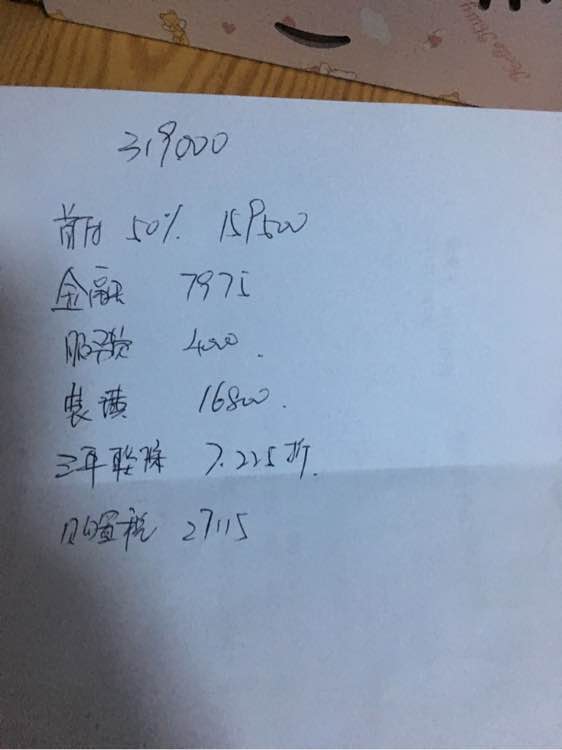 319000
首付 50% 159500
金融 7975
服务费 4000.
装潢 16800.
三年联保 7.225折.
购置税 27115